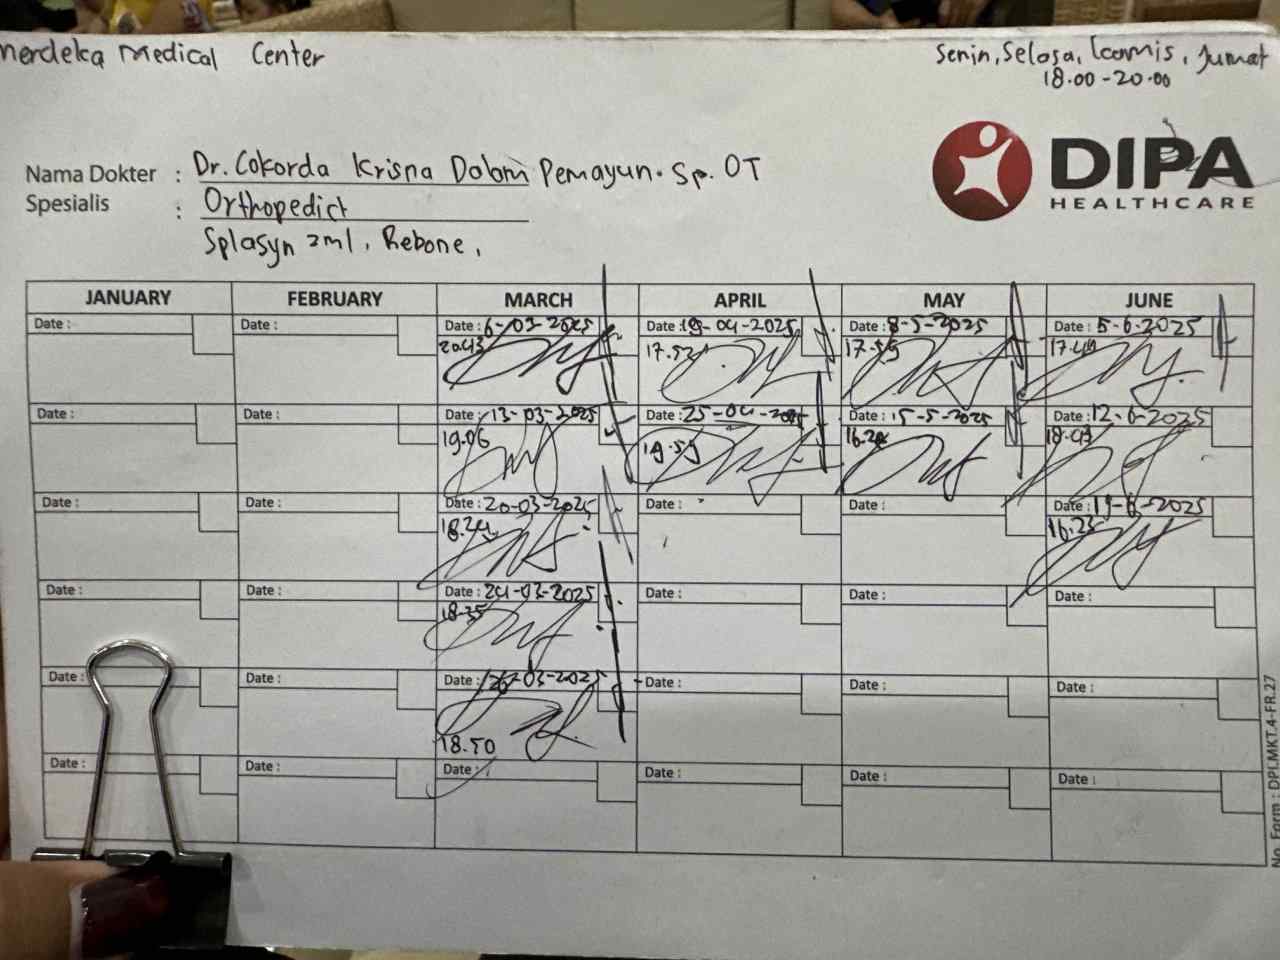 merdeka Medical Center
Senin, Selasa, kamis, Jumat
18.00-20.00
DIPA
HEALTHCARE
Nama Dokter : Dr. Cokorda Krisna Dalam Pemayun. Sp. OT
Spesialis : Orthopedict
Splasyn 2ml, Rebone,
JANUARY FEBRUARY MARCH APRIL MAY JUNE
Date : Date : Date : 6-03-2025 Date : 19-04-2025 Date : 8-5-2025 Date : 5-6-2025
20.43 17.52 17.59 17.49
Date : Date : Date : 13-03-2025 Date : 25-04-2025 Date : 15-5-2025 Date : 12-6-2025
19.06 19.59 16.28 18.43
Date : Date : Date : 20-03-2025 Date : Date : Date : 19-6-2025
18.24 16.23
Date : Date : Date : 24-03-2025 Date : Date : Date :
18.35
Date : Date : Date : 26-03-2025 Date : Date : Date :
18.50
Date : Date : Date : Date : Date : Date :
No. Form : DPLMKT.4-FR.27